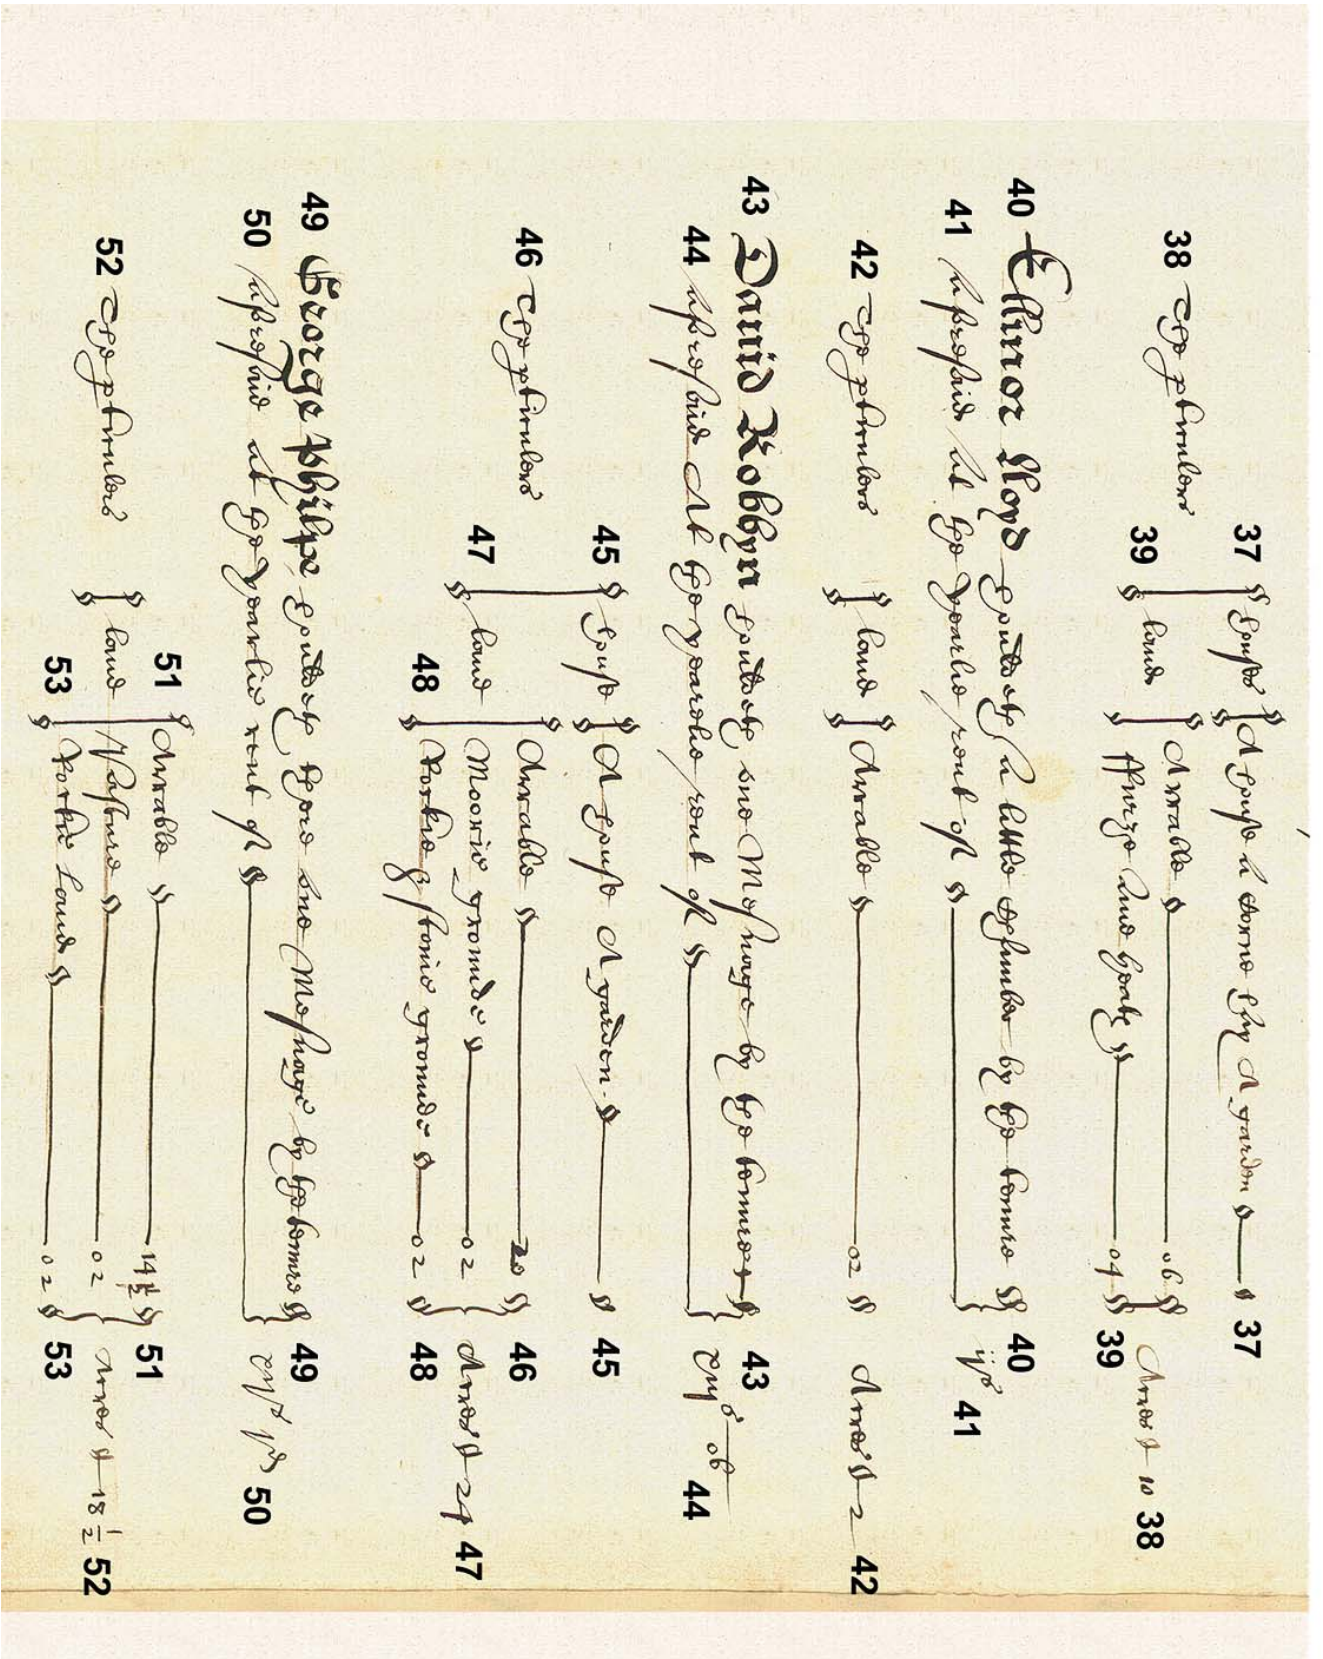 37 House A house a barne hay A garden 37
38 The p'ticulers Arrable 06 Acres 10 38
39 Land ffurze and heath 04 39
40 Ellinor Lloyd houldeth a little by the tenure 40
41 aforesaid at the yearlie rent of 41
42 The p'ticulers Land Arrable 02 Acres 2 42
43 David Robbyn houldeth one Messuage by the tenure 43
44 aforesaid At the yearelie rent of ob 44
45 House A house A garden 45
46 The p'ticulers Arrable 20 46
47 Land Moorie grounde 02 Acres 24 47
48 Rockie & stonie grounde 02 48
49 George Philip houldeth there one Messuage by the tenure 49
50 aforesaid at the yearlie rent of 50
51 Arrable 14 1/2 51
52 The p'ticulers Land Pasture 02 Acres 18 1/2 52
53 Rockie Land 02 53